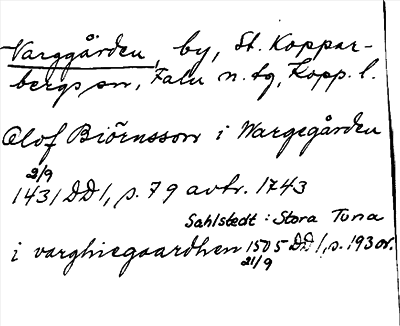 Varggården, by, St. Koppar-
bergs sn, Falu n. tg, Kopp. l.
Olof Biörnsson i Wargegården
2/9
1431 DD 1, s. 79 avtr. 1743
Sahlstedt: Stora Tuna
i varghiegaardhen 1505 DD 1, s. 193 or.
21/9